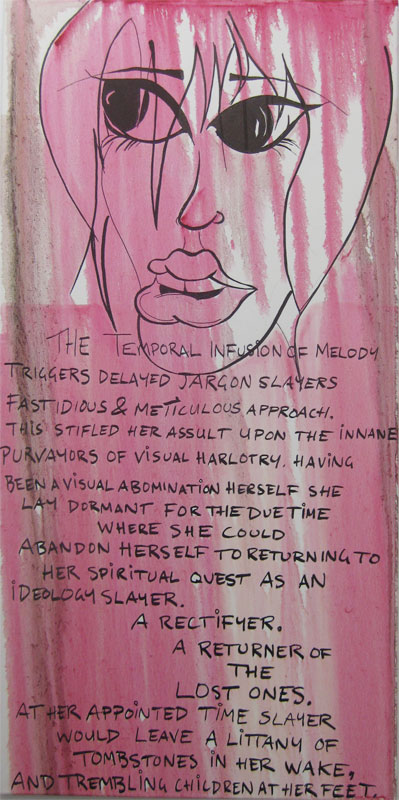 THE TEMPORAL INFUSION OF MELODY
TRIGGERS DELAYED JARGON SLAYERS
FASTIDIOUS & METICULOUS APPROACH.
THIS STIFLED HER ASSULT UPON THE INNANE
PURVAYORS OF VISUAL HARLOTRY. HAVING
BEEN A VISUAL ABOMINATION HERSELF SHE
LAY DORMANT FOR THE DUE TIME
WHERE SHE COULD
ABANDON HERSELF TO RETURNING TO
HER SPIRITUAL QUEST AS AN
IDEOLOGY SLAYER.
A RECTIFYER.
A RETURNER OF
THE
LOST ONES.
AT HER APPOINTED TIME SLAYER
WOULD LEAVE A LITTANY OF
TOMBSTONES IN HER WAKE,
AND TREMBLING CHILDREN AT HER FEET...